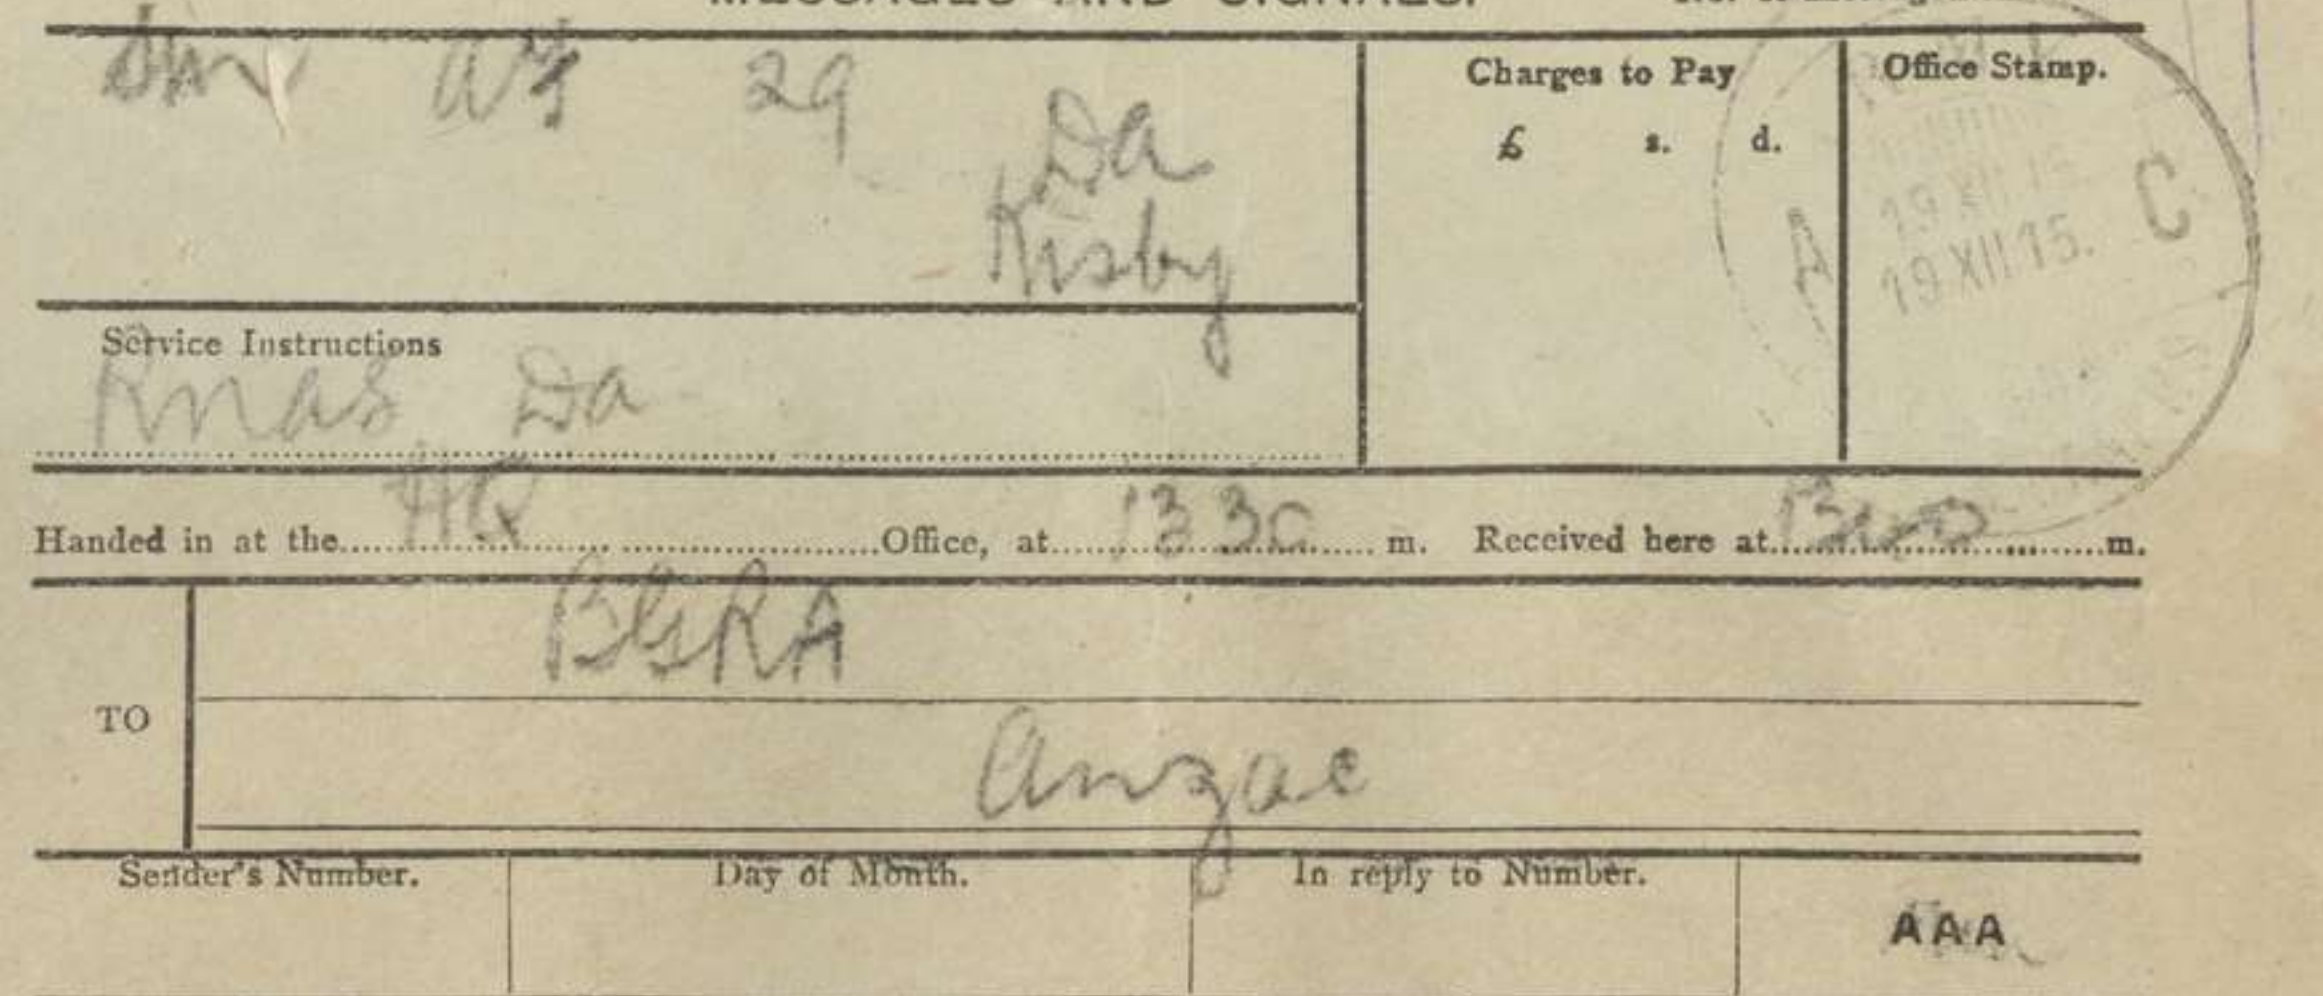 MESSAGES AND SIGNALS.
29
Da
Kisby
Charges to Pay
£ s. d.
Office Stamp.
A C
19 XII 15.
19 XII 15.
Service Instructions
Rnas Da
Handed in at the HQ Office, at 1330 m. Received here at m.
TO
BGRA
Anzac
Sender's Number. Day of Month. In reply to Number.
AAA